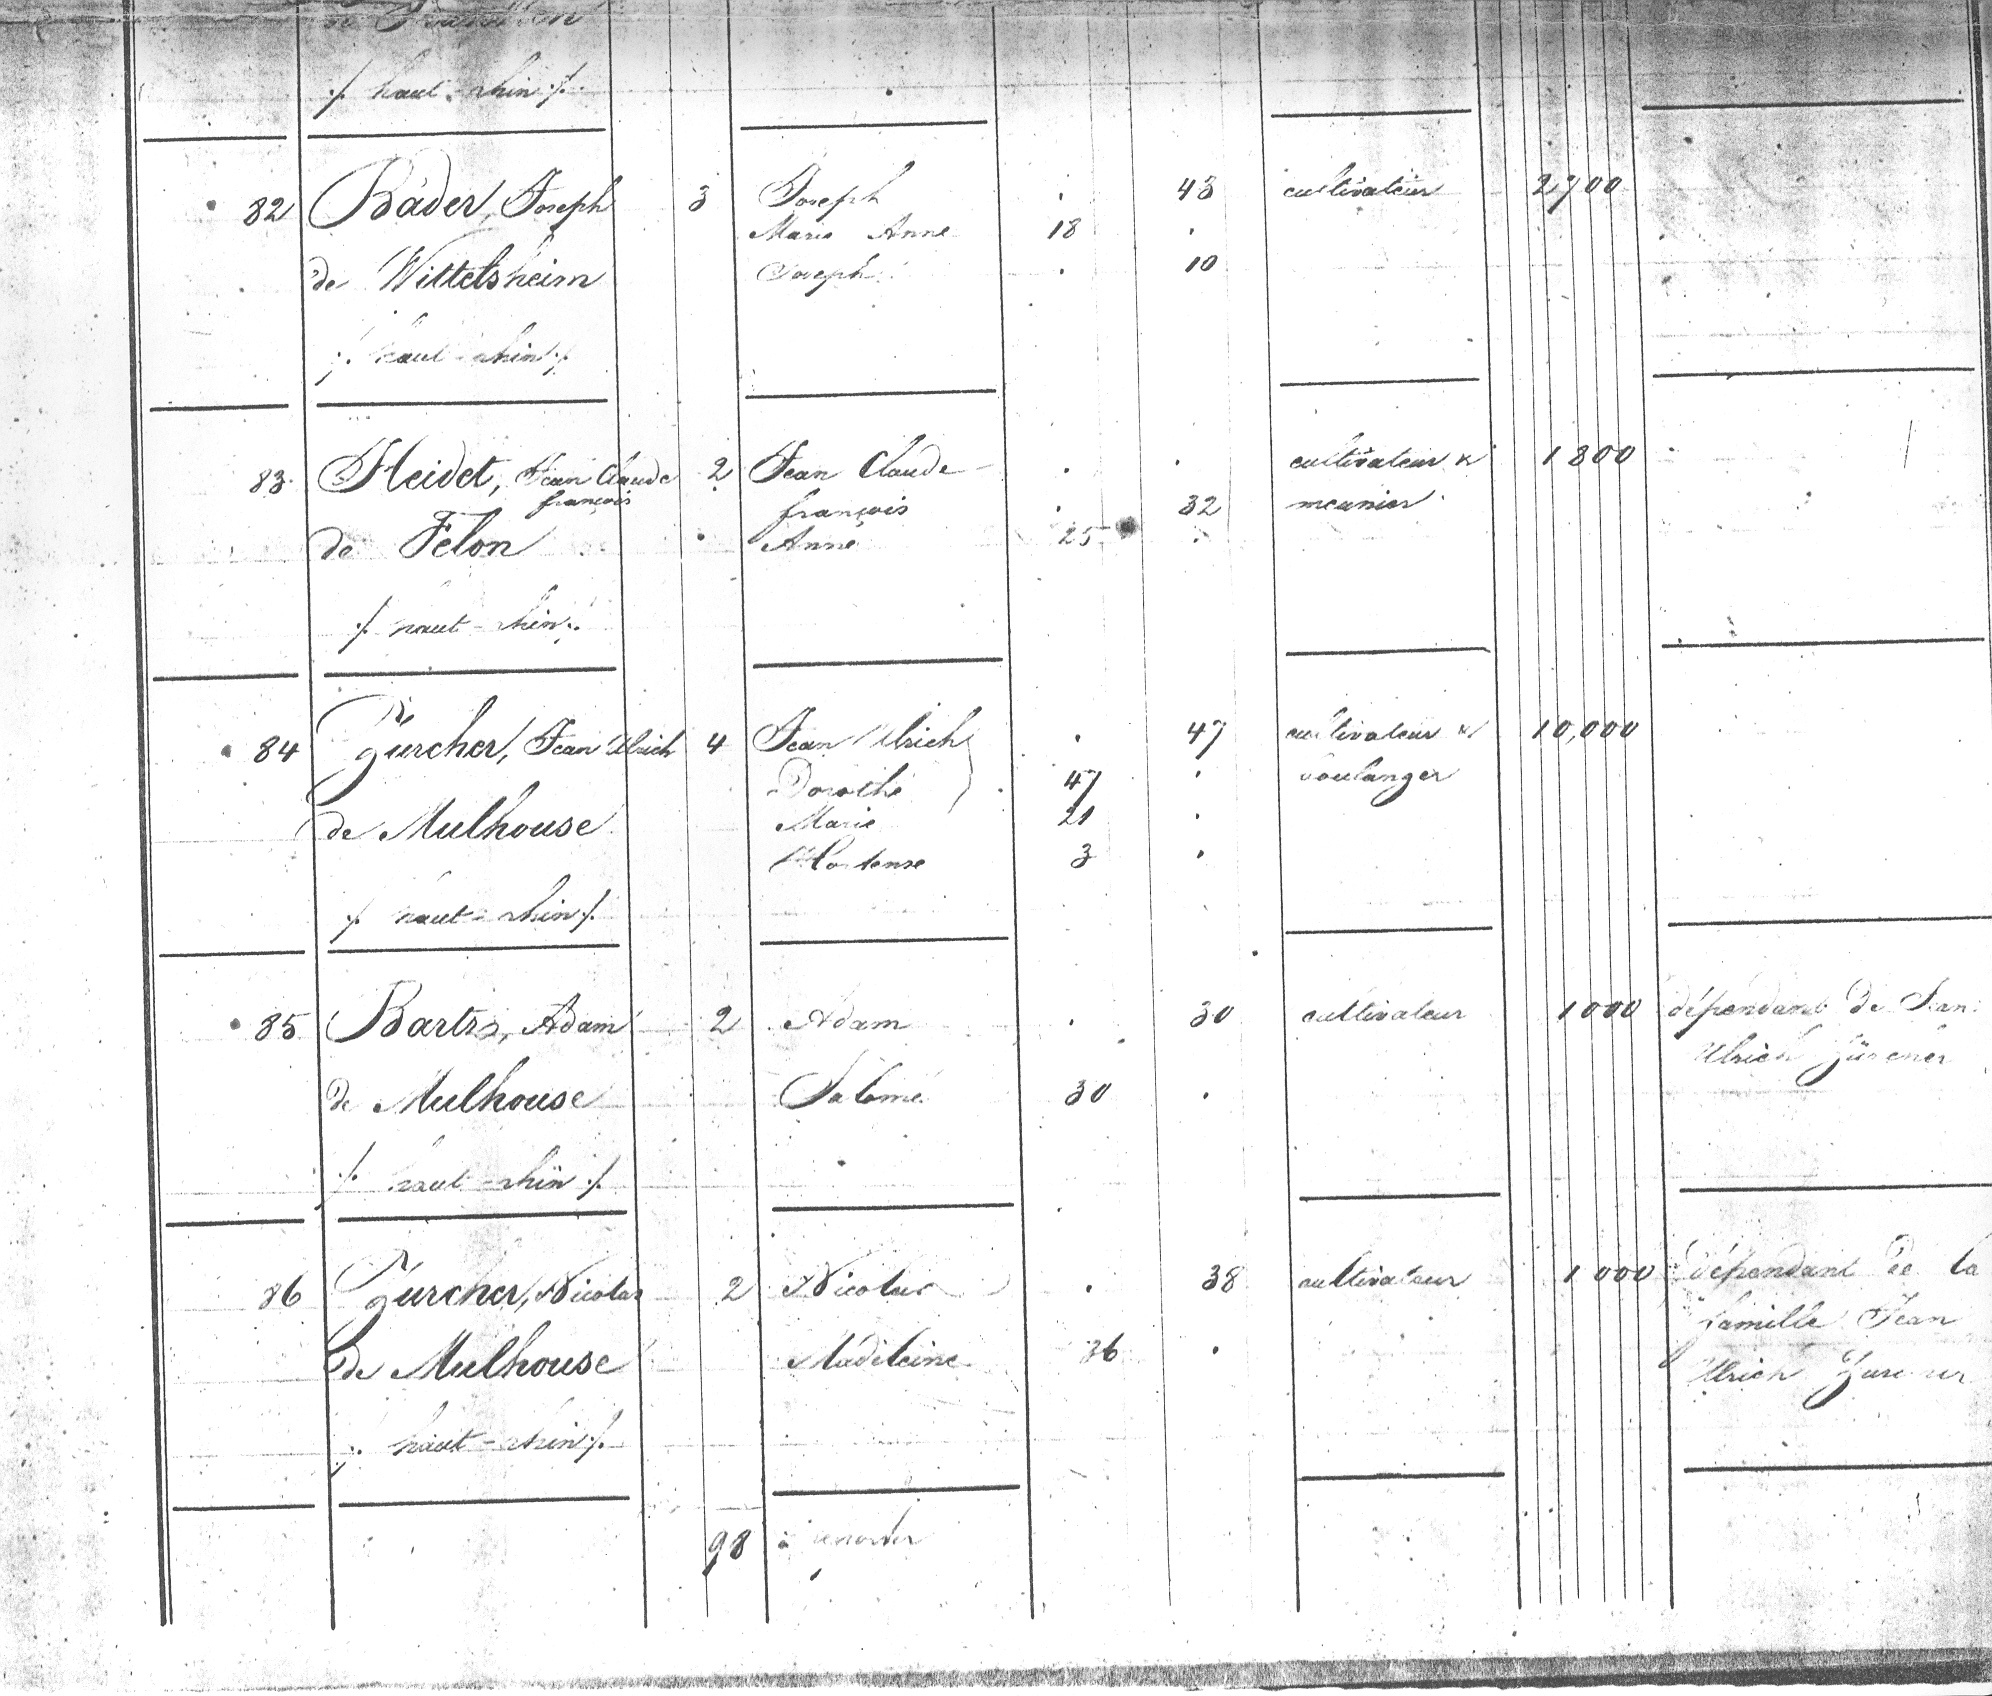 ./. haut-rhin ./.
82 Bader, Joseph 3 Joseph . 43 cultivateur 2700
Marie Anne 18 .
de Wittelsheim Joseph . 10
./. haut-rhin ./.
83 Heidet, Jean Claude 2 Jean Claude . . cultivateur & 1800
françois françois . 32 meunier
de Felon Anne 25 .
./. haut-rhin ./.
84 Zurcher, Jean Ulrich 4 Jean Ulrich . 47 cultivateur & 10,000
Dorothé 47 . boulanger
de Mulhouse Marie 21 .
Hortense 3 .
./. haut-rhin ./.
85 Bartz, Adam 2 Adam . 30 cultivateur 1000 dépendant de Jean
Ulrich Zürcher
de Mulhouse Salomé 30 .
./. haut-rhin ./.
86 Zurcher, Nicolas 2 Nicolas . 38 cultivateur 1000 dépendant de la
famille Jean
de Mulhouse Madeleine 36 . Ulrich Zurcher
./. haut-rhin ./.
98 à reporter